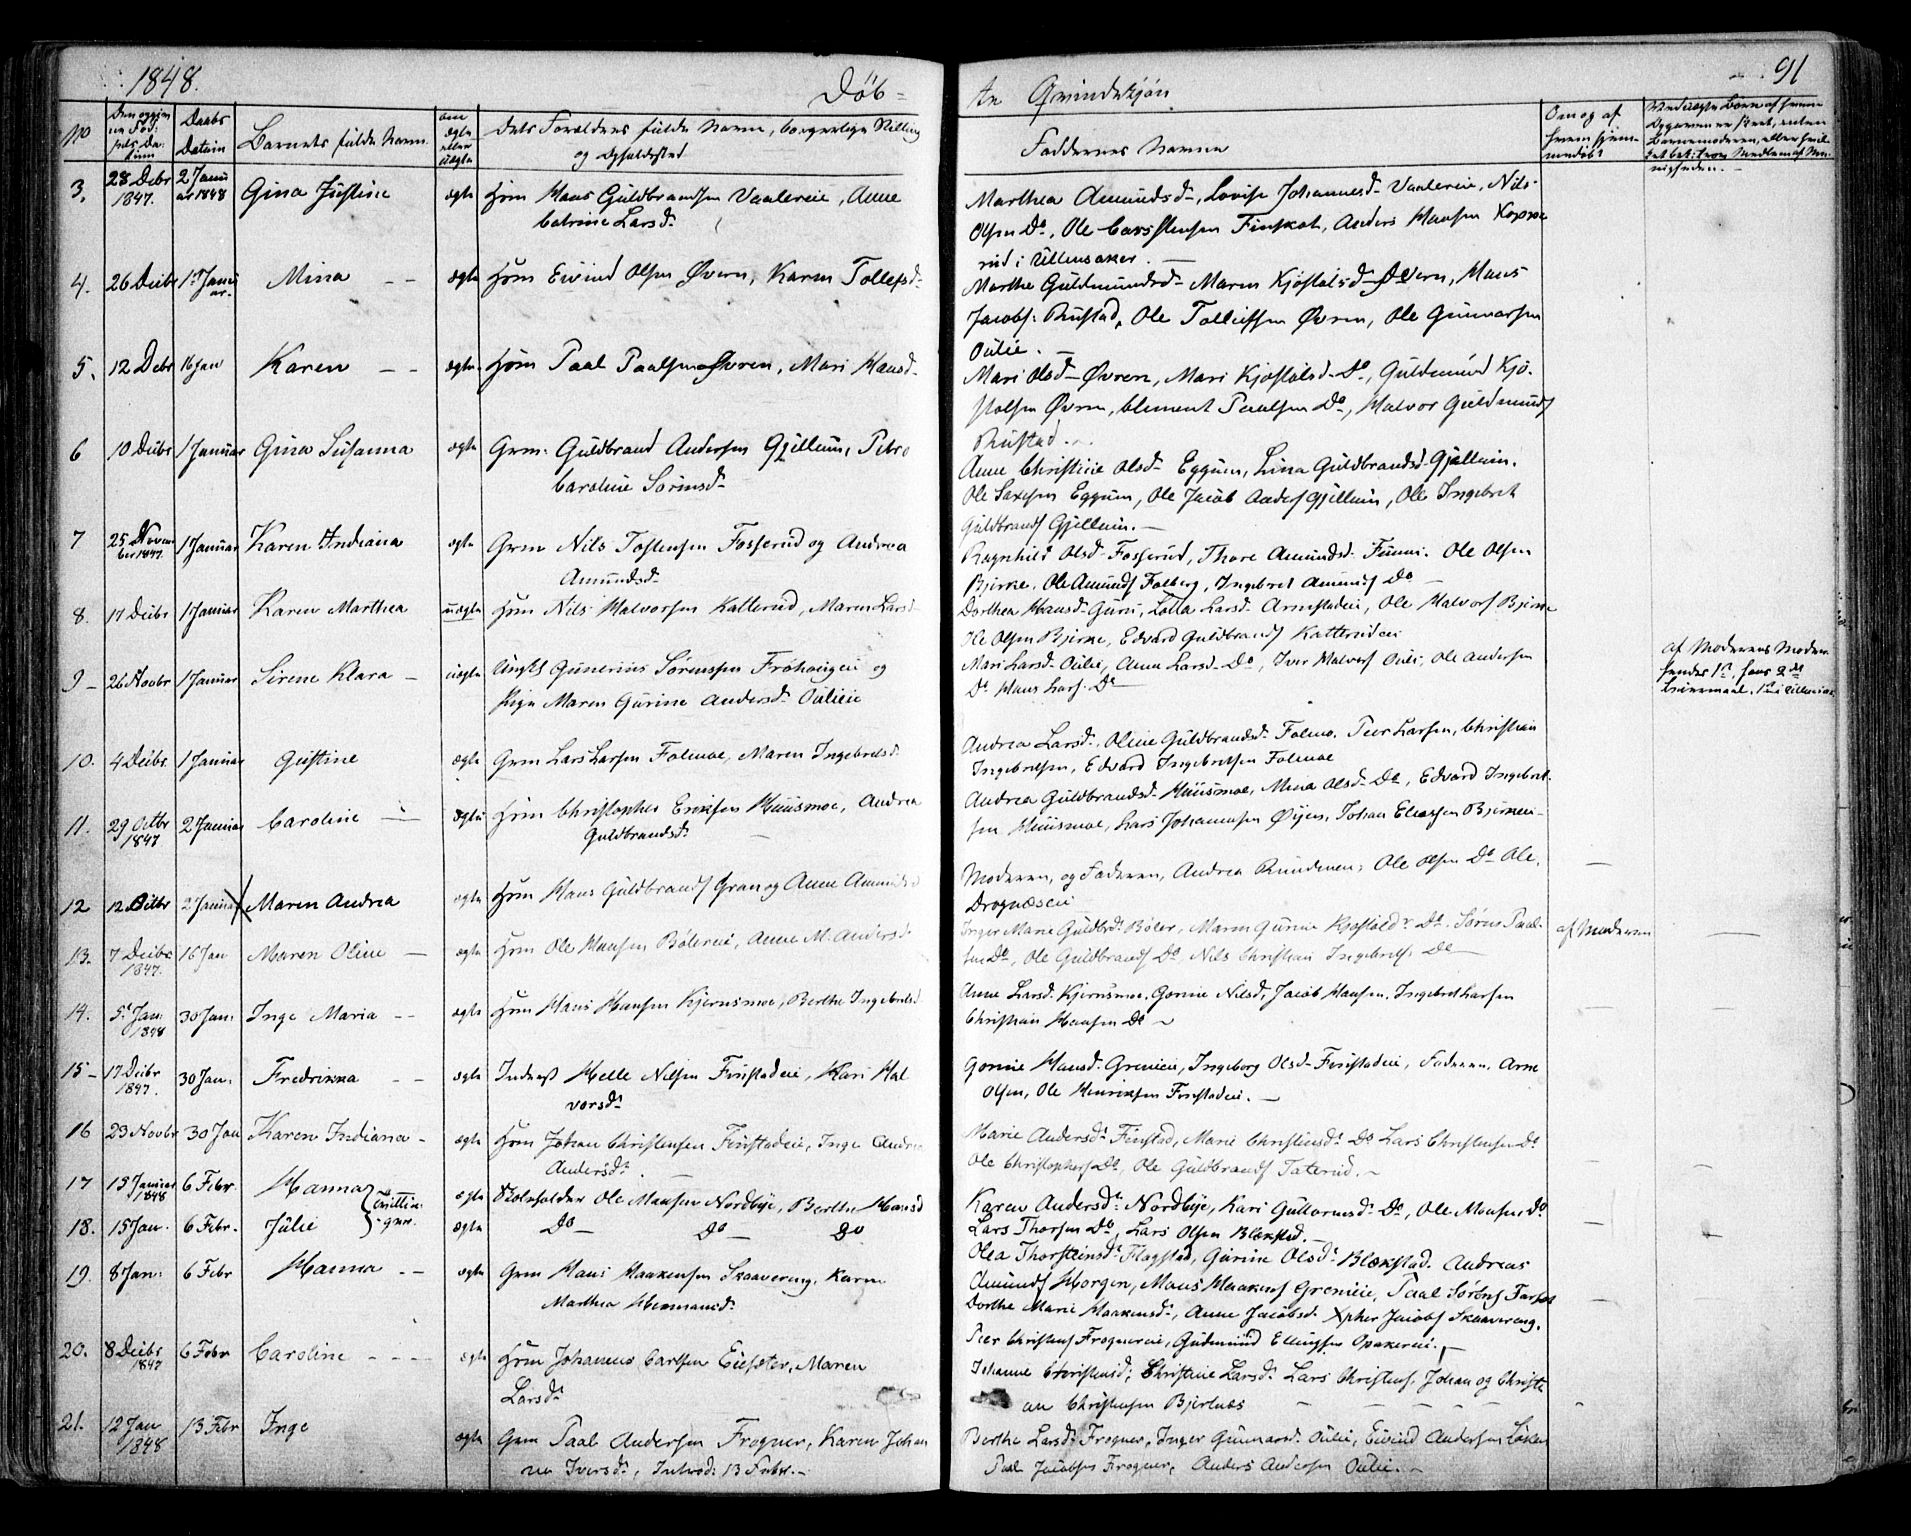 1848. Døb= te Qvindekjøn 91
No Barnets fulde Navn. ægte eller uægte Dets Forældres fulde Navne, borgerlige Stilling
Daabs Datum og Opholdssted Faddernes Navne
3. 28 Decbr 1847. 2 Januar 1848 Gina Justine ægte Hsm Hans Guldbrandsen Vaalereie, Anne
Catrine Larsd.
Marthea Amundsd., Lovise Johannesd. Vaalereie, Nils
Olsen Do., Ole
rud i Ullensaker. —
4. 26 Decbr 1 Januar Mina — — ægte Hsm Eivind Olsen Øvern, Karen Tollefsd.
Marthe Guldmundsd. Maren Kjøstolsd. Øvern, Hans
Jacobs. Rustad, Ole Øvren, Ole Gunnarsen
Oulie. —
5. 12 Decbr 16 Jan Karen — — ægte Hsm Paal Paalsen Øvren, Mari Hansd.
Mari Olsd. Øvren, Mari Kjøstolsd. Do, Guldmund Kjø-
stolsen Øvren, Clement Paalsen Do, Halvor Guldmunds
Rustad.
6 10 Decbr 1 Januar Gina Susanna ægte Grm. Guldbrand Andersen Gjellum, Petro
Caroline Sørensd.
Anne Christine Olsd. Eggum, Lina Guldbrandsd. Gjellum.
Ole Eggum, Ole Jacob Anders Gjellum, Ole Ingebret
Guldbrands Gjellum. —
7 25 November 1847. 1 Januar Karen Indiana ægte Grm Nils Tostensen Fosserud og Andrea
Amundsd.
Ragnhild Olsd. Fosserud, Thore Amundsd. Ole Olsen
Bjerke. Ole Amunds Falberg, Ingebret Amunds Do
8. 17 Decbr 1 Januar Karen Marthea uægte Hsm Nils Halvorsen Katterud, Maren Larsd.
Dorthea Hansd. Lotta Larsd. Ole Halvors Bjerke
Ole Olsen Bjerke, Edvard Guldbrands Katterudeie
9 — 26 Novbr 1 Januar Sirene Klara — uægte Ungkl Gunerius Sørenssen Frøhaugeie og
Pige Maren Gurine Andersd. Oulieie
Mari Larsd. Oulie, Anne Larsd. Do, Iver Halvors Ouli, Ole Andersen
Do Hans Lars. Do
af Moderens Moder.
hendes 1te, hans 2det
10. 4 Decbr. 1 Januar Gustine ægte Grm Lars Larsen Folmoe, Maren Ingebretsd.
Andrea Larsd., Oline Guldbrandsd. Folmo. Peer Larsen, Christian
Ingebretsen, Edvard Ingebretsen Folmoe
11. 29 Octbr 1847 2 Januar Caroline — ægte Hsm Christopher Eriksen Huusmoe, Andrea
Guldbrandsd. —
Andrea Guldbrandsd. Huusmoe, Mina Olsd. Do, Edvard Ingebret-
sen Huusmoe, Lars Johannesen Øyen, Johan Eliassen Bjerken —
12 12 Octbr 2 Januar Maren Andrea ægte Hsm Hans Guldbrands Gran og Anne Amundsd
Moderen, og Faderen, Andrea Ole Olsen Do Ole,
Drognæseie
13. 7 Decbr 1847. 16 Jan Maren Oline — ægte Hsm Ole Hansen Bølereie, Anne M. Andersd
Inger Marie Guldbrd. Bøler, Maren Gurine Kjøstolsdr Do. Søren Paal-
sen Do, Ole Guldbrands Do, Nils Christian Ingebrets. Do af Moderen —
14. 5 Jan. 1848 30 Jan. Inge Maria — — ægte Hsm Hans Hansen Kjernsmoe, Berthe Ingebretsd.
Anne Larsd. Kjernsmoe. Gonne Nilsd, Jacob Hansen. Ingebret Larsen
Christian Hansen Do —
15 — 17 Decbr 1847. 30 Jan. Fredrikka — — ægte Inderst Helle Nilsen Finstadeie, Kari Hal
vorsd.
Gonne Hansd. Grenieie, Ingeborg Olsd. Finstadeie, Faderen. Arne
Olsen, Ole Henriksen Finstadeie. —
16 23 Novbr 30 Jan Karen Indiana — ægte Hsm Johan Christensen Finstadeie, Inge Andrea
Andersd. —
Marie Andersd. Finstad, Marie Christensd. Do Lars Christensen Do
Ole Christophers Do, Ole Guldbrands Taterud. —
17 15 Januar 1848 6 Febr. Hanna } Tvillin- ægte Skoleholder Ole Hansen Nordbye, Berthe Hansd
18. 15 Jan. 6 Febr. Julie } ger. ægte Do — Do — Do
Karen Andersd. Nordbye, Kari Guttormsd. Do, Ole Hansen Do
Lars Thorsen Do, Lars Olsen Blekstad. —
19. 8 Jan. 6 Febr Hanna — — ægte Grm Hans Haakensen Skaavereng, Karen
Marthea Hermansd.
Olea Thorsteinsd. Flagstad, Gurine Olsd. Blækstad. Andreas
Amunds Horgen, Hans Haakens Grenieie, Paal Sørens
Dorthe Marie Haakensd., Anne Jacobsd. Xpher Jacobs Skaavereng.
20. 8 Decbr 1847 6 Febr Caroline — — — ægte Hsm Johannes Carlsen Maren
Larsd.
Peer Christens Frognereie, Gudmund Ellingsen Opakereie.
Johanne Christensd; Christine Larsd. Lars Christens. Johan og Christi
an Christensen Bjertnæs
21. 12 Jan 1848 13 Febr Inge ægte Grm Paal Andersen Frogner, Karen Johan
ne Iversd., Introd. 13 Febr. —
Berthe Larsd. Frogner, Inger Gunnarsd. Oulie, Eivind Andersen Løken
Paal Jacobsen Frogner, Anders Andersen Oulie. —